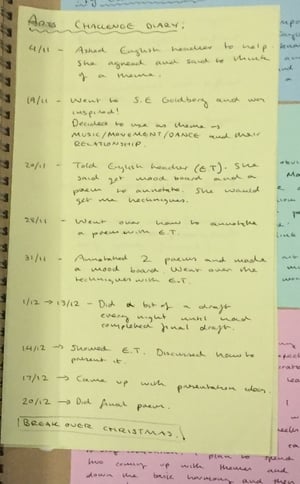 Arts CHALLENGE DIARY:
4/11 - Asked English teacher to help.
She agreed and said to think
of a theme.
19/11 - Went to S.E Goldberg and was
inspired!
Decided to use as theme →
MUSIC/MOVEMENT/DANCE and their
RELATIONSHIP.
20/11 - Told English teacher (E.T). She
said get mood board and a
poem to annotate. She would
get me techniques.
28/11 - Went over how to annotate
a poem with E.T.
31/11 - Annotated 2 poems and made
a mood board. Went over the
techniques with E.T.
1/12 → 13/12 - Did a bit of a draft
every night until had
completed final draft.
14/12 → Showed E.T. Discussed how to
present it.
17/12 → Came up with presentation idea.
20/12 → Did final poem.
BREAK OVER CHRISTMAS.
plan to spend
two coming up with themes and
down the basic harmony and then